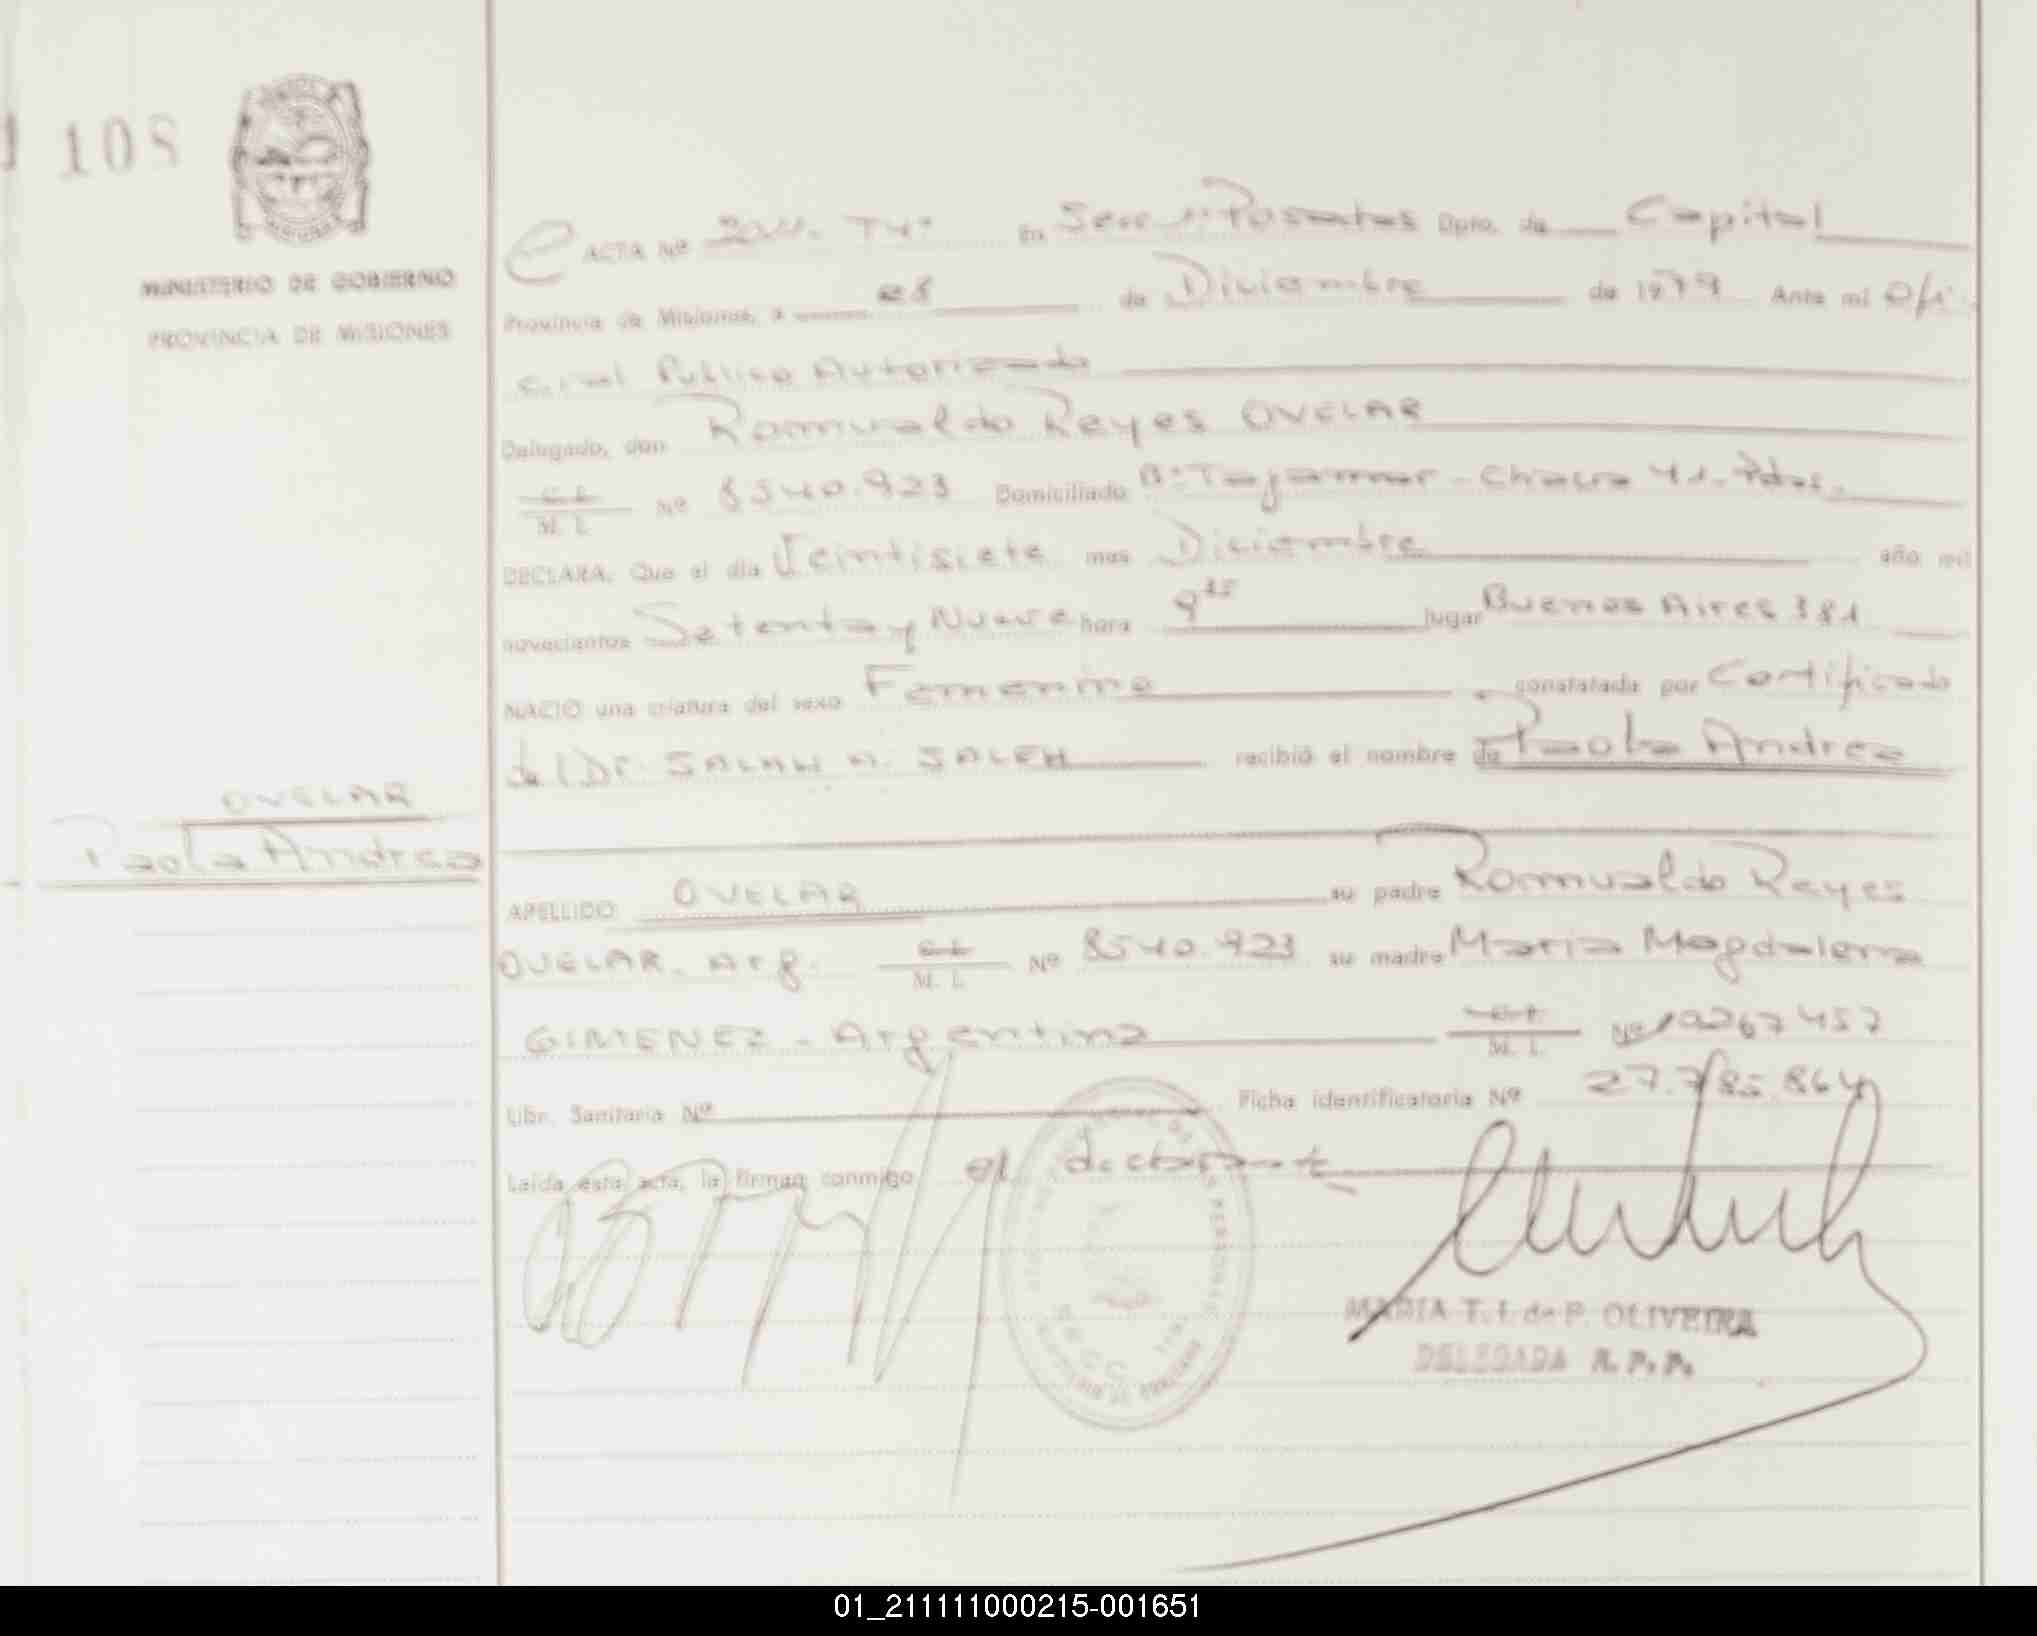 108
MINISTERIO DE GOBIERNO
PROVINCIA DE MISIONES
ACTA Nº T4º en Secc 1ª Posadas Dpto. de Capital
Provincia de Misiones, a 28 de Diciembre de 1979 Ante mi Ofi-
cial Publico Autorizado
Delegado, don Romualdo Reyes OVELAR
M. I. Nº 8540.923 Domiciliado Bº Tajamar - Chacra 41- Pdas.
DECLARA: Que el día Veintisiete mes Diciembre año mil
novecientos Setenta y Nueve hora 9 15 lugar Buenos Aires 381
NACIO una criatura del sexo Femenino constatada por Certificado
del Dr. SALAH M. SALEH recibió el nombre de Paola Andrea
OVELAR
Paola Andrea
APELLIDO OVELAR su padre Romualdo Reyes
OVELAR. Arg. M. I. Nº 8540.923 su madre Maria Magdalena
GIMENEZ - Argentina M. I. Nº 10267457
Libr. Sanitaria Nº Ficha identificatoria Nº 27.785.864
Leída esta acta, la firman conmigo el declarante
MARIA T. I. de P. OLIVEIRA
DELEGADA R. P. P.
01_211111000215-001651